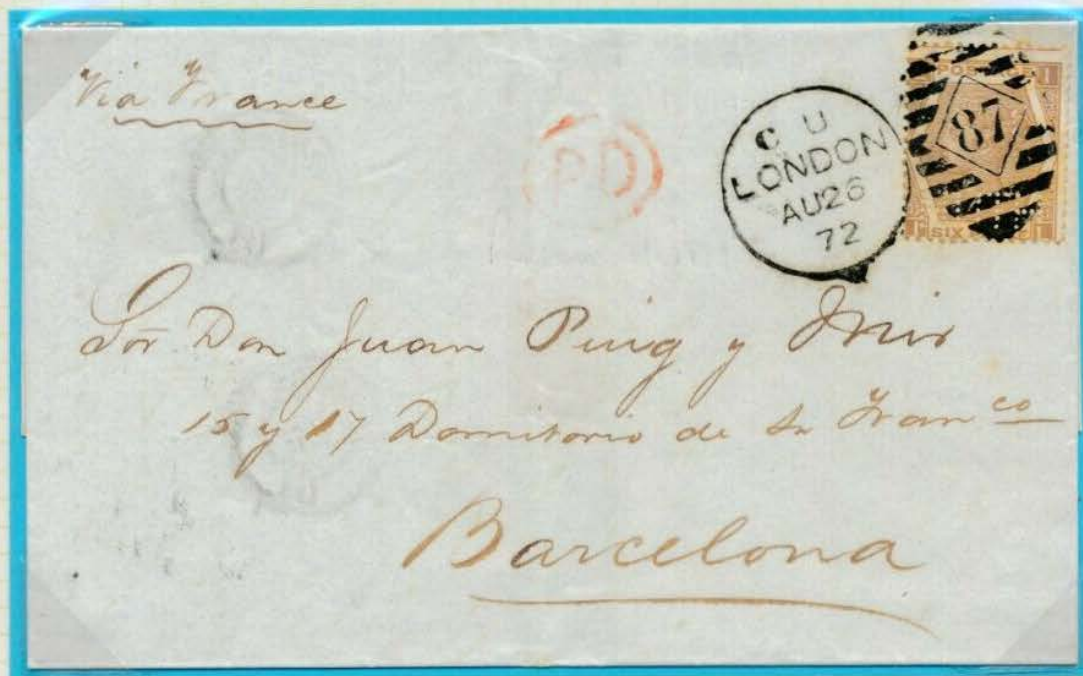 Via France
PD
C U
LONDON
AU26
72
87
POSTAGE
SIX
Sor Don Juan Puig y Mir
15 y 17 Dormitorio de Sn Franco
Barcelona